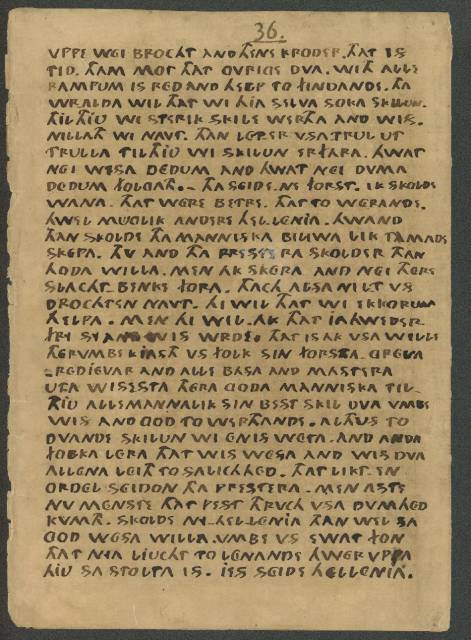 36.
VPPE WEI BROCHT AND THENS KRODER. THAT IS
TID. THAM MOT THAT OVRICES DVA. WITH ALLE
RAMPUM IS RED AND HELP TO FINDANDE. THA
WRALDA WIL THAT WI HIA SELVA SOKA SKILUN.
TIL THIU WI STERIK SKILE WERTHA AND WIS.
NILLATH WI NAVT. THAN LETER VSA TRUL UT
TRULLA TIL THIU WI SKILUN ERFARA. HWAT
NEI WISA DEDUM AND HWAT NEI DVMA
DEDUM FOLGATH.- THA SEIDE NE FORST. IK SKOLDE
WANA. THAT WERE BETRE. THAT TO WERANDE.
HWEL MUGLIK ANDERE HELLENIA. HWAND
THAN SKOLDE THA MANNISKA BILIWA LIK TAMADE
SKEPA. THV AND THA PRESTERA SKOLDER THAN
HODA WILLA. MEN AK SKERA AND NEI THERE
SLACHT BENKE FORA. THACH ALSA NILT VS
DROCHTEN NAVT. HI WIL THAT WI EKKORUM
HELPA. MEN HI WIL AK THAT IAHWEDER
FRI SY AND WIS WRDE. THAT IS AK VSA WILLE
THERVMBE KIASTH VS FOLK SIN FORSTA. GREVA
REDIEVAR AND ALLE BASA AND MASTERA
UTA WISESTA THERA GODA MANNISKA TIL
THIU ALLEMANNALIK SIN BEST SKIL DVA VMBE
WIS AND GOD TO WERTHANDE. ALTHUS TO
DVANDE SKILUN WI ENIS WETA. AND ANDA
FOLKA LERA THAT WIS WESA AND WIS DVA
ALLENA LEITH TO SALICHHED. THAT LIKT EN
ORDEL SEIDON THA PRESTERA. MEN ASTE
NV MENSTE THAT PEST THRUCH VSA DVMHED
KVMTH. SKOLDE NY-HELLENIA THAN WEL SA
GOD WESA WILLA. VMBE VS EWAT FON
THAT NYA LIUCHT TO LENANDE HWER VPPA
HIU SA STOLTA IS. IES SEIDE HELLENIA.